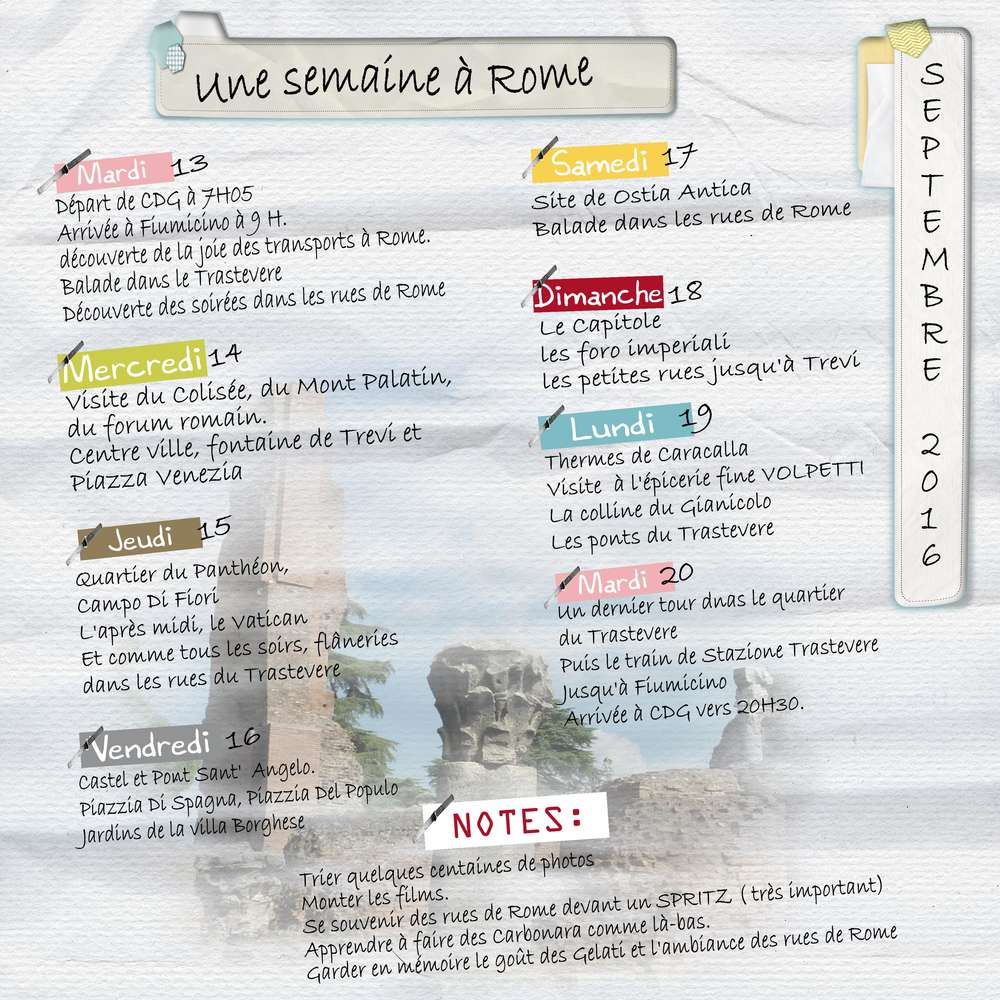 Une semaine à Rome
Mardi 13
Départ de CDG à 7H05
Arrivée à Fiumicino à 9 H.
découverte de la joie des transports à Rome.
Balade dans le Trastevere
Découverte des soirées dans les rues de Rome
Mercredi 14
Visite du Colisée, du Mont Palatin,
du forum romain.
Centre ville, fontaine de Trevi et
Piazza Venezia
Jeudi 15
Quartier du Panthéon,
Campo Di Fiori
L'après midi, le Vatican
Et comme tous les soirs, flâneries
dans les rues du Trastevere
Vendredi 16
Castel et Pont Sant' Angelo.
Piazzia Di Spagna, Piazzia Del Populo
Jardins de la villa Borghese
Samedi 17
Site de Ostia Antica
Balade dans les rues de Rome
Dimanche 18
Le Capitole
les foro imperiali
les petites rues jusqu'à Trevi
Lundi 19
Thermes de Caracalla
Visite à l'épicerie fine VOLPETTI
La colline du Gianicolo
Les ponts du Trastevere
Mardi 20
Un dernier tour dnas le quartier
du Trastevere
Puis le train de Stazione Trastevere
Jusqu'à Fiumicino
Arrivée à CDG vers 20H30.
SEPTEMBRE 2016
NOTES:
Trier quelques centaines de photos
Monter les films.
Se souvenir des rues de Rome devant un SPRITZ ( très important)
Apprendre à faire des Carbonara comme là-bas.
Garder en mémoire le goût des Gelati et l'ambiance des rues de Rome